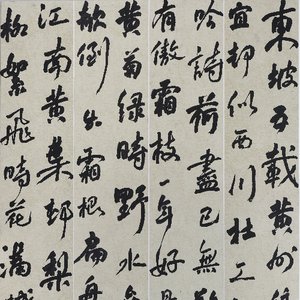 東坡五載黃州
宜却似西川杜工
吟詩荷盡已無
有傲霜枝一年好
黃菊綠時野水
欹倒出霜根扁舟
江南黃葉邨梨
柳絮飛時花滿城